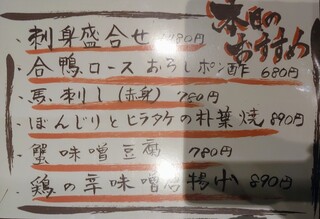 本日の
おすすめ
・刺身盛合せ 1480円
・合鴨ロースおろしポン酢 680円
・馬刺し(赤身) 780円
・ぼんじりとヒラタケの朴葉焼 890円
・蟹味噌豆腐 780円
・鶏の辛味噌唐揚げ 890円